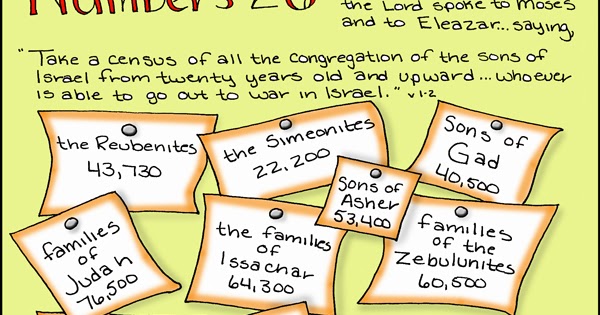 Numbers 26
the Lord spoke to Moses
and to Eleazar...saying,
"Take a census of all the congregation of the sons of
Israel from twenty years old and upward...whoever
is able to go out to war in Israel." v1-2
the Reubenites
43,730
the Simeonites
22,200
Sons of
Gad
40,500
Sons of
Asher
53,400
families
of
Judah
76,500
the families
of
Issachar
64,300
families
of the
Zebulunites
60,500